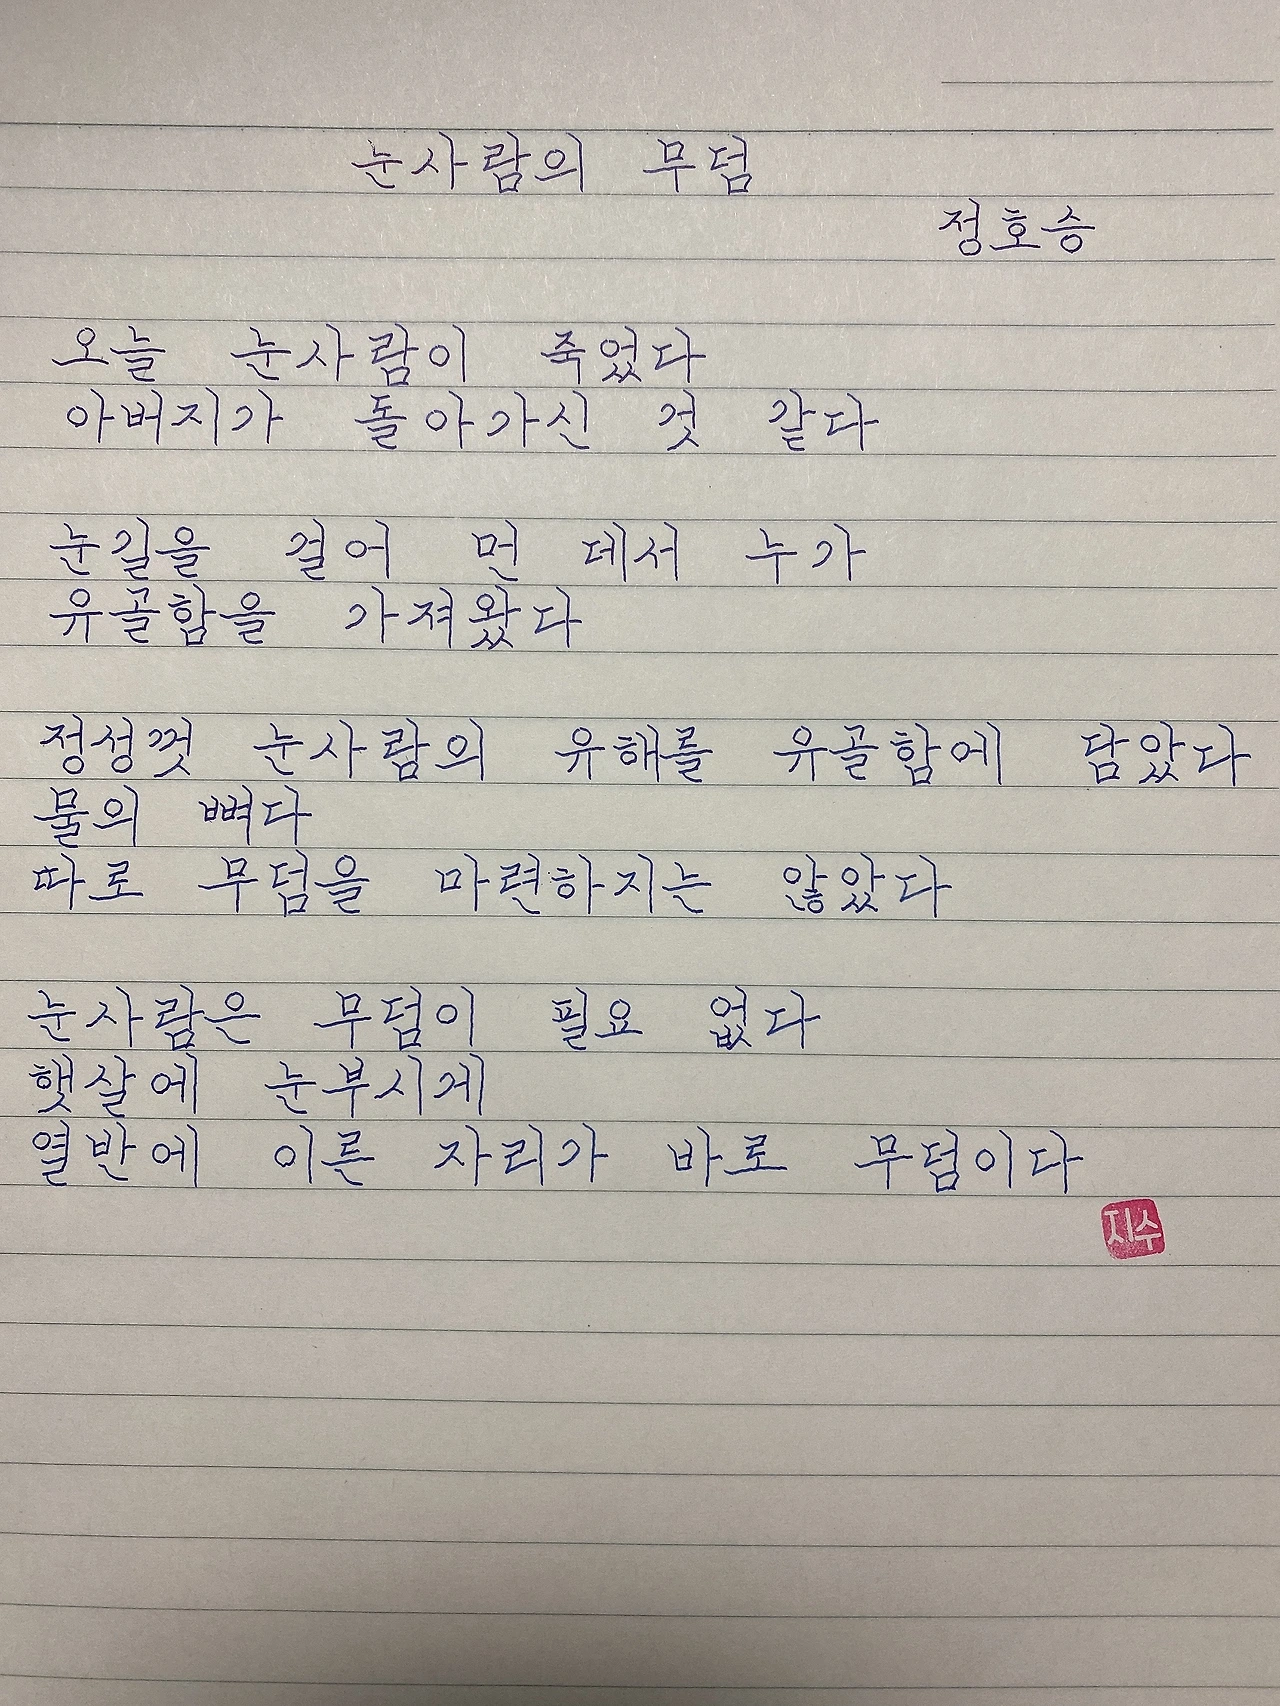 눈사람의 무덤
정호승
오늘 눈사람이 죽었다
아버지가 돌아가신 것 같다
눈길을 걸어 먼 데서 누가
유골함을 가져왔다
정성껏 눈사람의 유해를 유골함에 담았다
물의 뼈다
따로 무덤을 마련하지는 않았다
눈사람은 무덤이 필요 없다
햇살에 눈부시게
열반에 이른 자리가 바로 무덤이다
지수